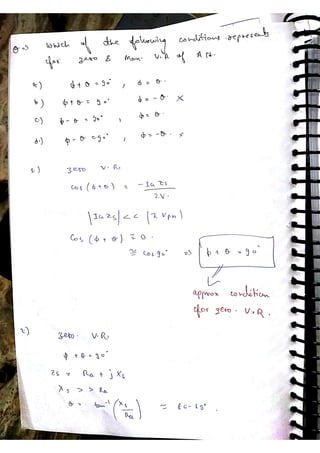 Q⇒ Which of the following conditions represents
for zero & Max. V.R of Alt.
a) ϕ + θ = 90° , ϕ = θ.
b) ϕ + θ = 90° , ϕ = -θ ×
c) ϕ - θ = 90° , ϕ = θ.
d.) ϕ - θ = 90° , ϕ = -θ. ×
1) zero V.R,
cos (ϕ + θ) = -Ia Zs / 2V.
|Ia Zs| << (2 Vph)
cos (ϕ + θ) ≅ 0.
≅ cos 90° ⇒ ϕ + θ = 90°
approx condition
for zero. V.R.
2) zero. V.R,
ϕ + θ = 90°
Zs = Ra + j Xs
Xs >> Ra
θ = tan⁻¹ (Xs / Ra) ≈